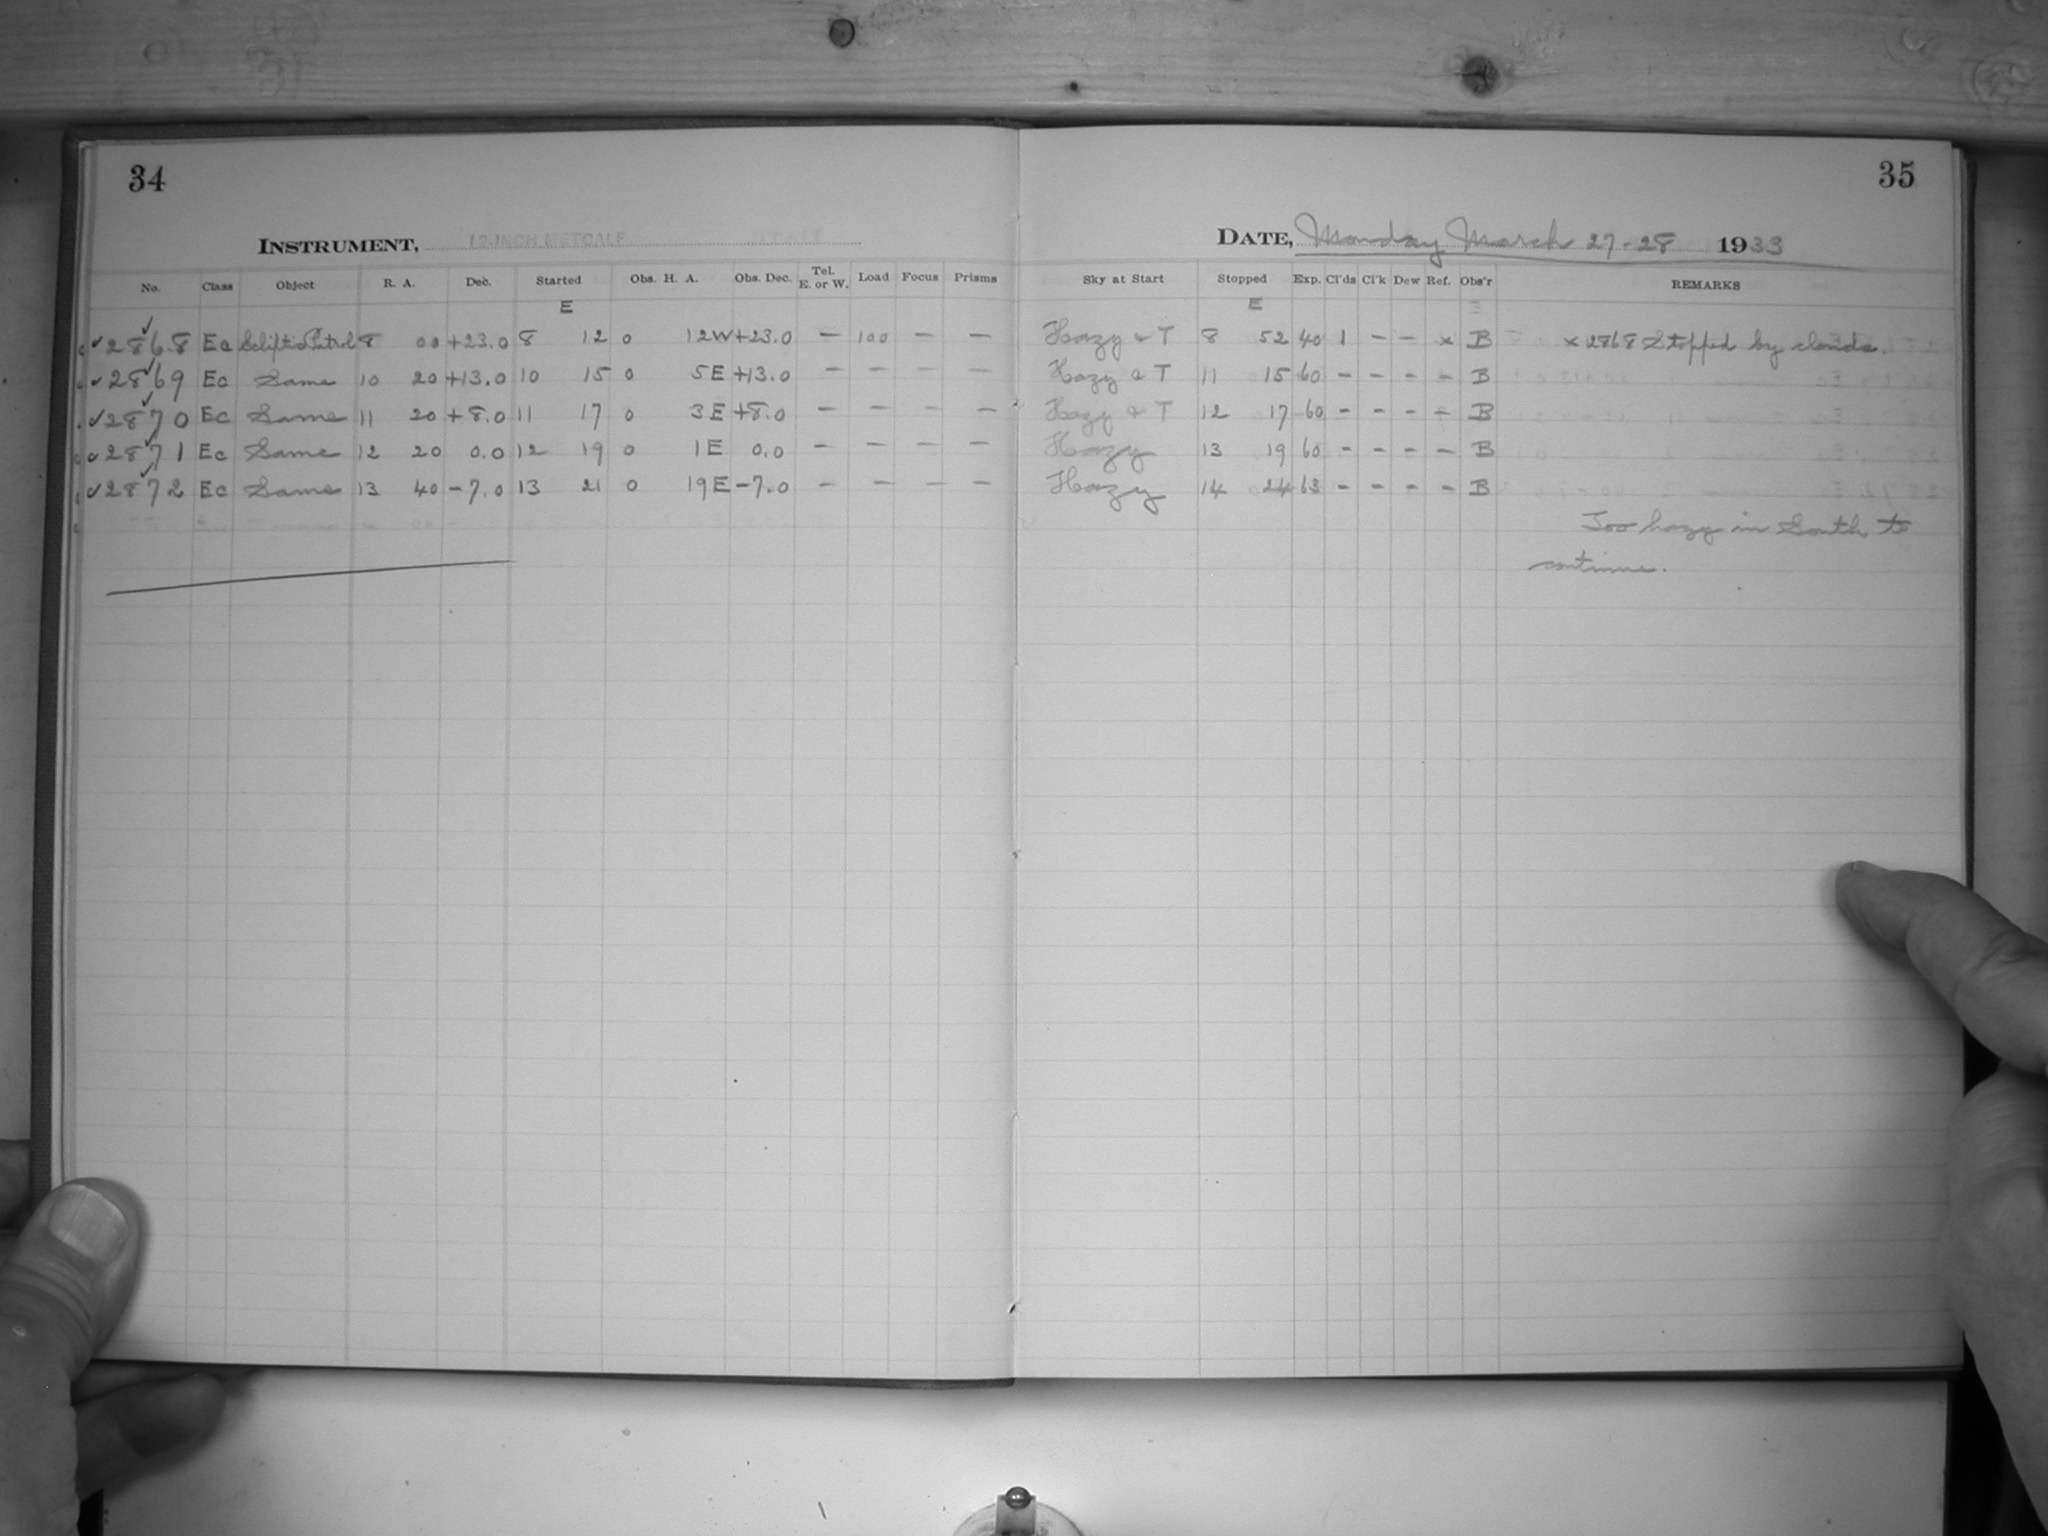 34
INSTRUMENT, 12-INCH METCALF
No. Class Object R. A. Dec. Started Obs. H. A. Obs. Dec. Tel. E. or W. Load Focus Prisms
E
✓ 2868 Ec Ecliptic Patrol 8 00 +23.0 8 12 0 12W +23.0 — 100 — —
✓ 2869 Ec Same 10 20 +13.0 10 15 0 5E +13.0 — — — —
✓ 2870 Ec Same 11 20 +8.0 11 17 0 3E +8.0 — — — —
✓ 2871 Ec Same 12 20 0.0 12 19 0 1E 0.0 — — — —
✓ 2872 Ec Same 13 40 -7.0 13 21 0 19E -7.0 — — — —
35
DATE, Monday March 27-28 1933
Sky at Start Stopped Exp. Cl'ds Cl'k Dew Ref. Obs'r REMARKS
E
Hazy & T 8 52 40 1 - - x B x 2868 Stopped by clouds.
Hazy & T 11 15 60 - - - - B
Hazy & T 12 17 60 - - - - B
Hazy 13 19 60 - - - - B
Hazy 14 24 63 - - - - B
Too hazy in South to
continue.